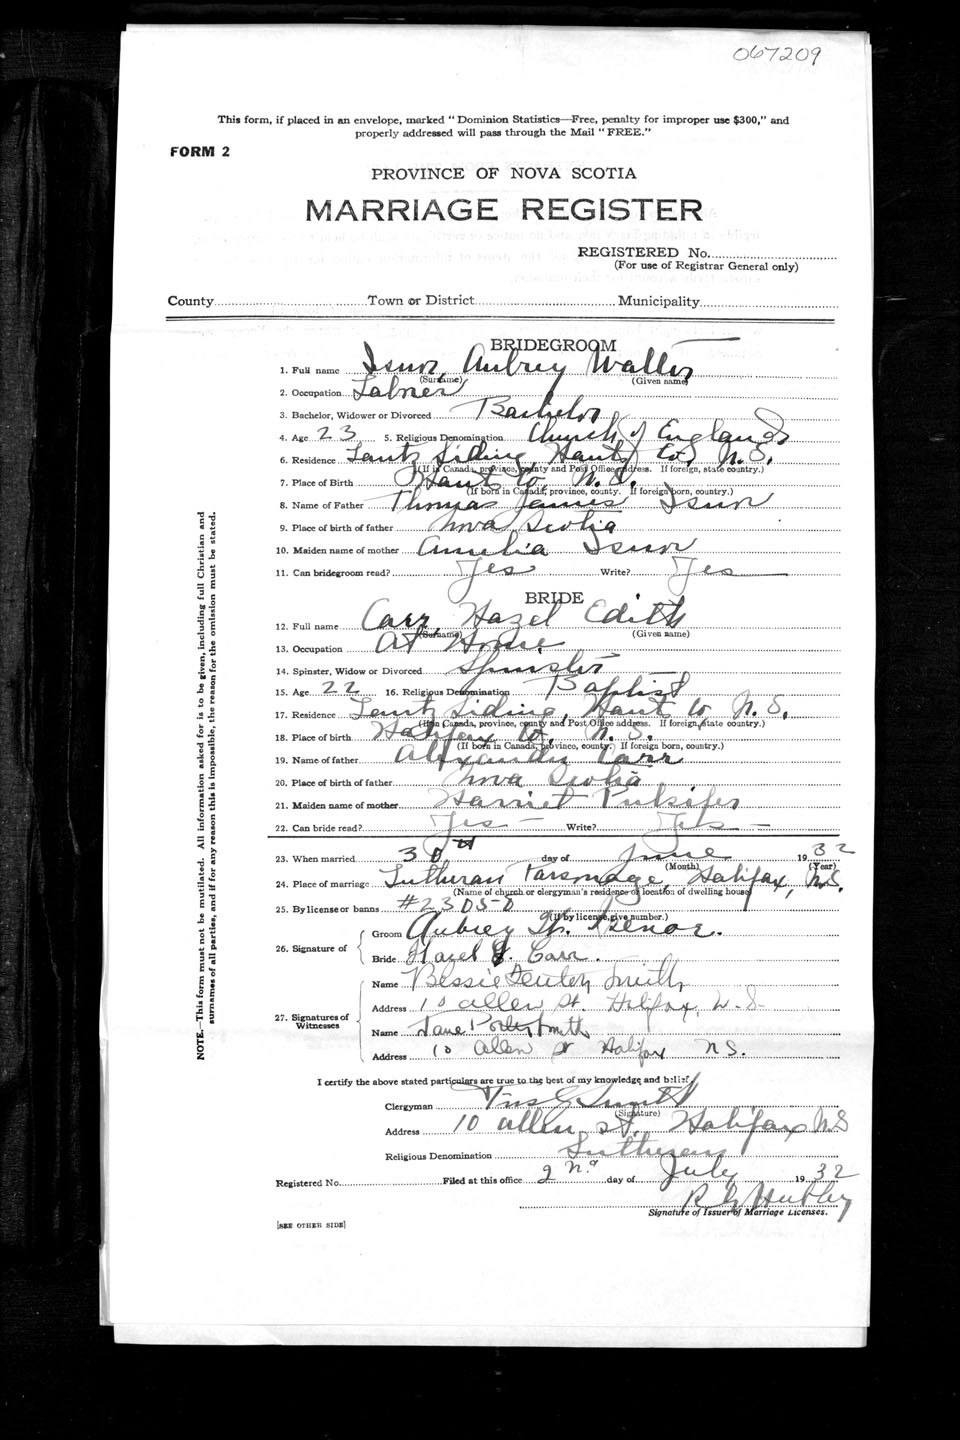 067209
This form, if placed in an envelope, marked "Dominion Statistics—Free, penalty for improper use $300," and
properly addressed will pass through the Mail "FREE."
FORM 2
PROVINCE OF NOVA SCOTIA
MARRIAGE REGISTER
REGISTERED No.
(For use of Registrar General only)
County Town or District Municipality
NOTE.—This form must not be mutilated. All information asked for is to be given, including full Christian and
surnames of all parties, and if for any reason this is impossible, the reason for the omission must be stated.
BRIDEGROOM
1. Full name Isnor, Aubrey Walter
(Surname) (Given name)
2. Occupation Laborer
3. Bachelor, Widower or Divorced Bachelor
4. Age 23 5. Religious Denomination Church of England
6. Residence Lantz Siding, Hants Co, N.S.
(If in Canada, province, county and Post Office address. If foreign, state country.)
7. Place of Birth Hants Co, N.S.
(If born in Canada, province, county. If foreign born, country.)
8. Name of Father Thomas James Isnor
9. Place of birth of father Nova Scotia
10. Maiden name of mother Amelia Isnor
11. Can bridegroom read? Yes Write? Yes
BRIDE
12. Full name Carr, Hazel Edith
(Surname) (Given name)
13. Occupation At Home
14. Spinster, Widow or Divorced Spinster
15. Age 22 16. Religious Denomination Baptist
17. Residence Lantz Siding, Hants Co N.S.
(If in Canada, province, county and Post Office address. If foreign, state country.)
18. Place of birth Halifax Co, N.S.
(If born in Canada, province, county. If foreign born, country.)
19. Name of father Alexander Carr
20. Place of birth of father Nova Scotia
21. Maiden name of mother Harriet Pulsifer
22. Can bride read? Yes — Write? Yes —
23. When married 30th day of June 1932
(Month) (Year)
24. Place of marriage Lutheran Parsonage, Halifax, N.S.
(Name of church or clergyman's residence or location of dwelling house)
25. By license or banns #23050
(If by license, give number.)
26. Signature of Groom Aubrey Isenor.
Bride Hazel E. Carr.
27. Signatures of Witnesses
Name Bessie Fenton Smith
Address 10 Allen St. Halifax, N.S.
Name Jane Porter Smith
Address 10 Allen St Halifax N.S.
I certify the above stated particulars are true to the best of my knowledge and belief.
Clergyman Smith
(Signature)
Address 10 Allen St. Halifax N.S
Religious Denomination Lutheran
Registered No. Filed at this office 2nd day of July 1932
Hubley
Signature of Issuer of Marriage Licenses.
[SEE OTHER SIDE]